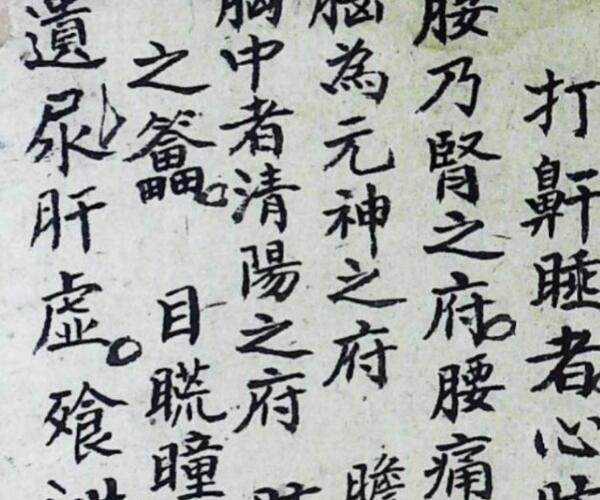 打鼾睡者心
腰乃腎之府腰痛
腦為元神之府
胸中者清陽之府
之 目䀮瞳
遺尿肝虛飧